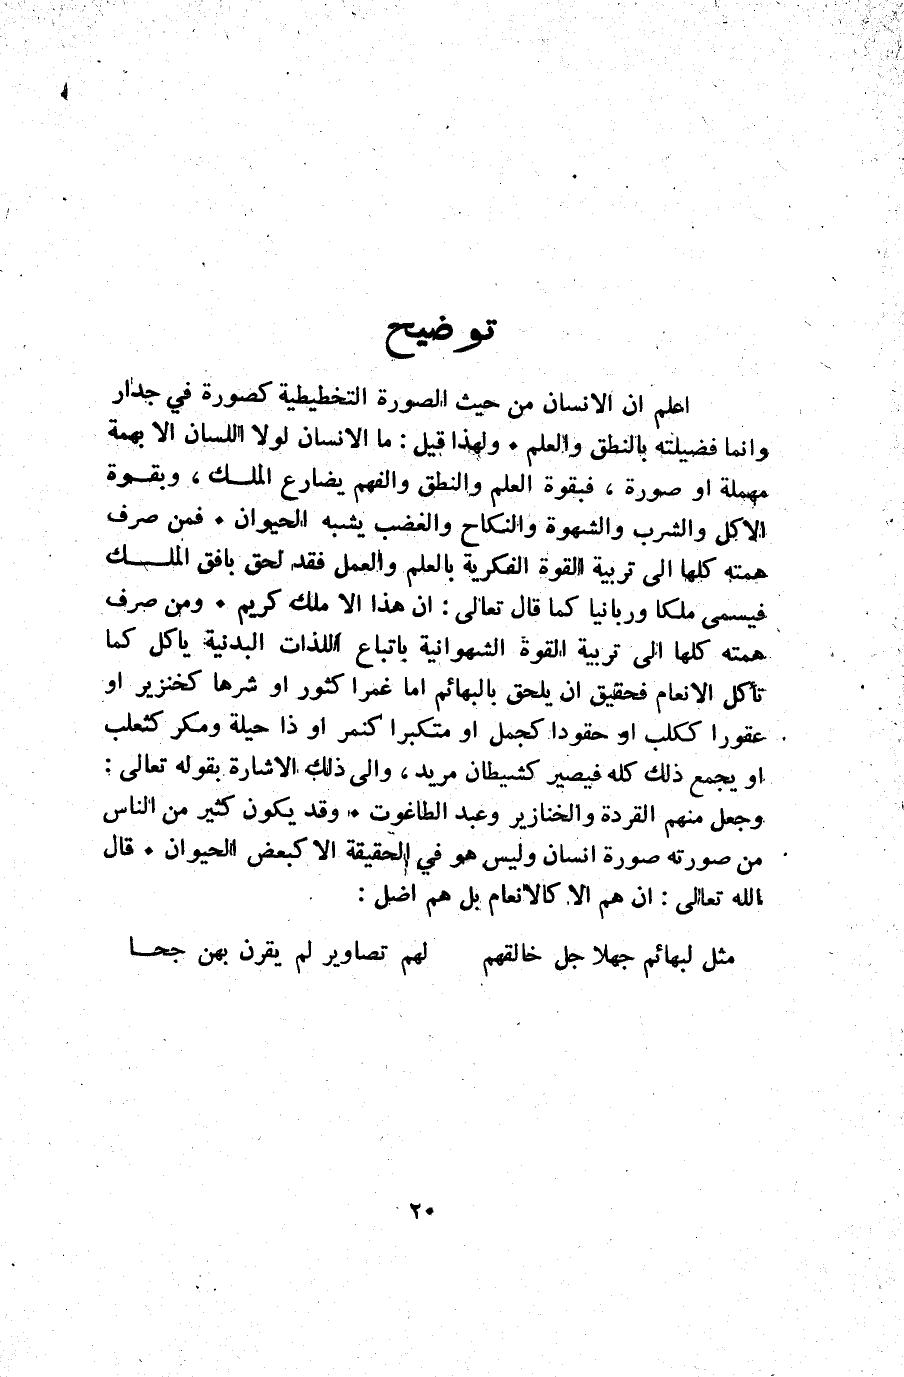 توضيح
اعلم ان الانسان من حيث الصورة التخطيطية كصورة في جدار
وانما فضيلته بالنطق والعلم • ولهذا قيل : ما الانسان لولا اللسان الا بهمة
مهملة او صورة ، فبقوة العلم والنطق والفهم يضارع الملك ، وبقوة
الاكل والشرب والشهوة والنكاح والغضب يشبه الحيوان • فمن صرف
همته كلها الى تربية القوة الفكرية بالعلم والعمل فقد لحق بافق الملك
فيسمى ملكا وربانيا كما قال تعالى : ان هذا الا ملك كريم • ومن صرف
همته كلها الى تربية القوة الشهوانية باتباع اللذات البدنية ياكل كما
تأكل الانعام فحقيق ان يلحق بالبهائم اما غمرا كثور او شرها كخنزير او
عقورا ككلب او حقودا كجمل او متكبرا كنمر او ذا حيلة ومكر كثعلب
او يجمع ذلك كله فيصير كشيطان مريد ، والى ذلك الاشارة بقوله تعالى :
وجعل منهم القردة والخنازير وعبد الطاغوت • وقد يكون كثير من الناس
من صورته صورة انسان وليس هو في الحقيقة الا كبعض الحيوان • قال
الله تعالى : ان هم الا كالانعام بل هم اضل :
مثل لبهائم جهلا جل خالقهم لهم تصاوير لم يقرن بهن جحا
٢٠